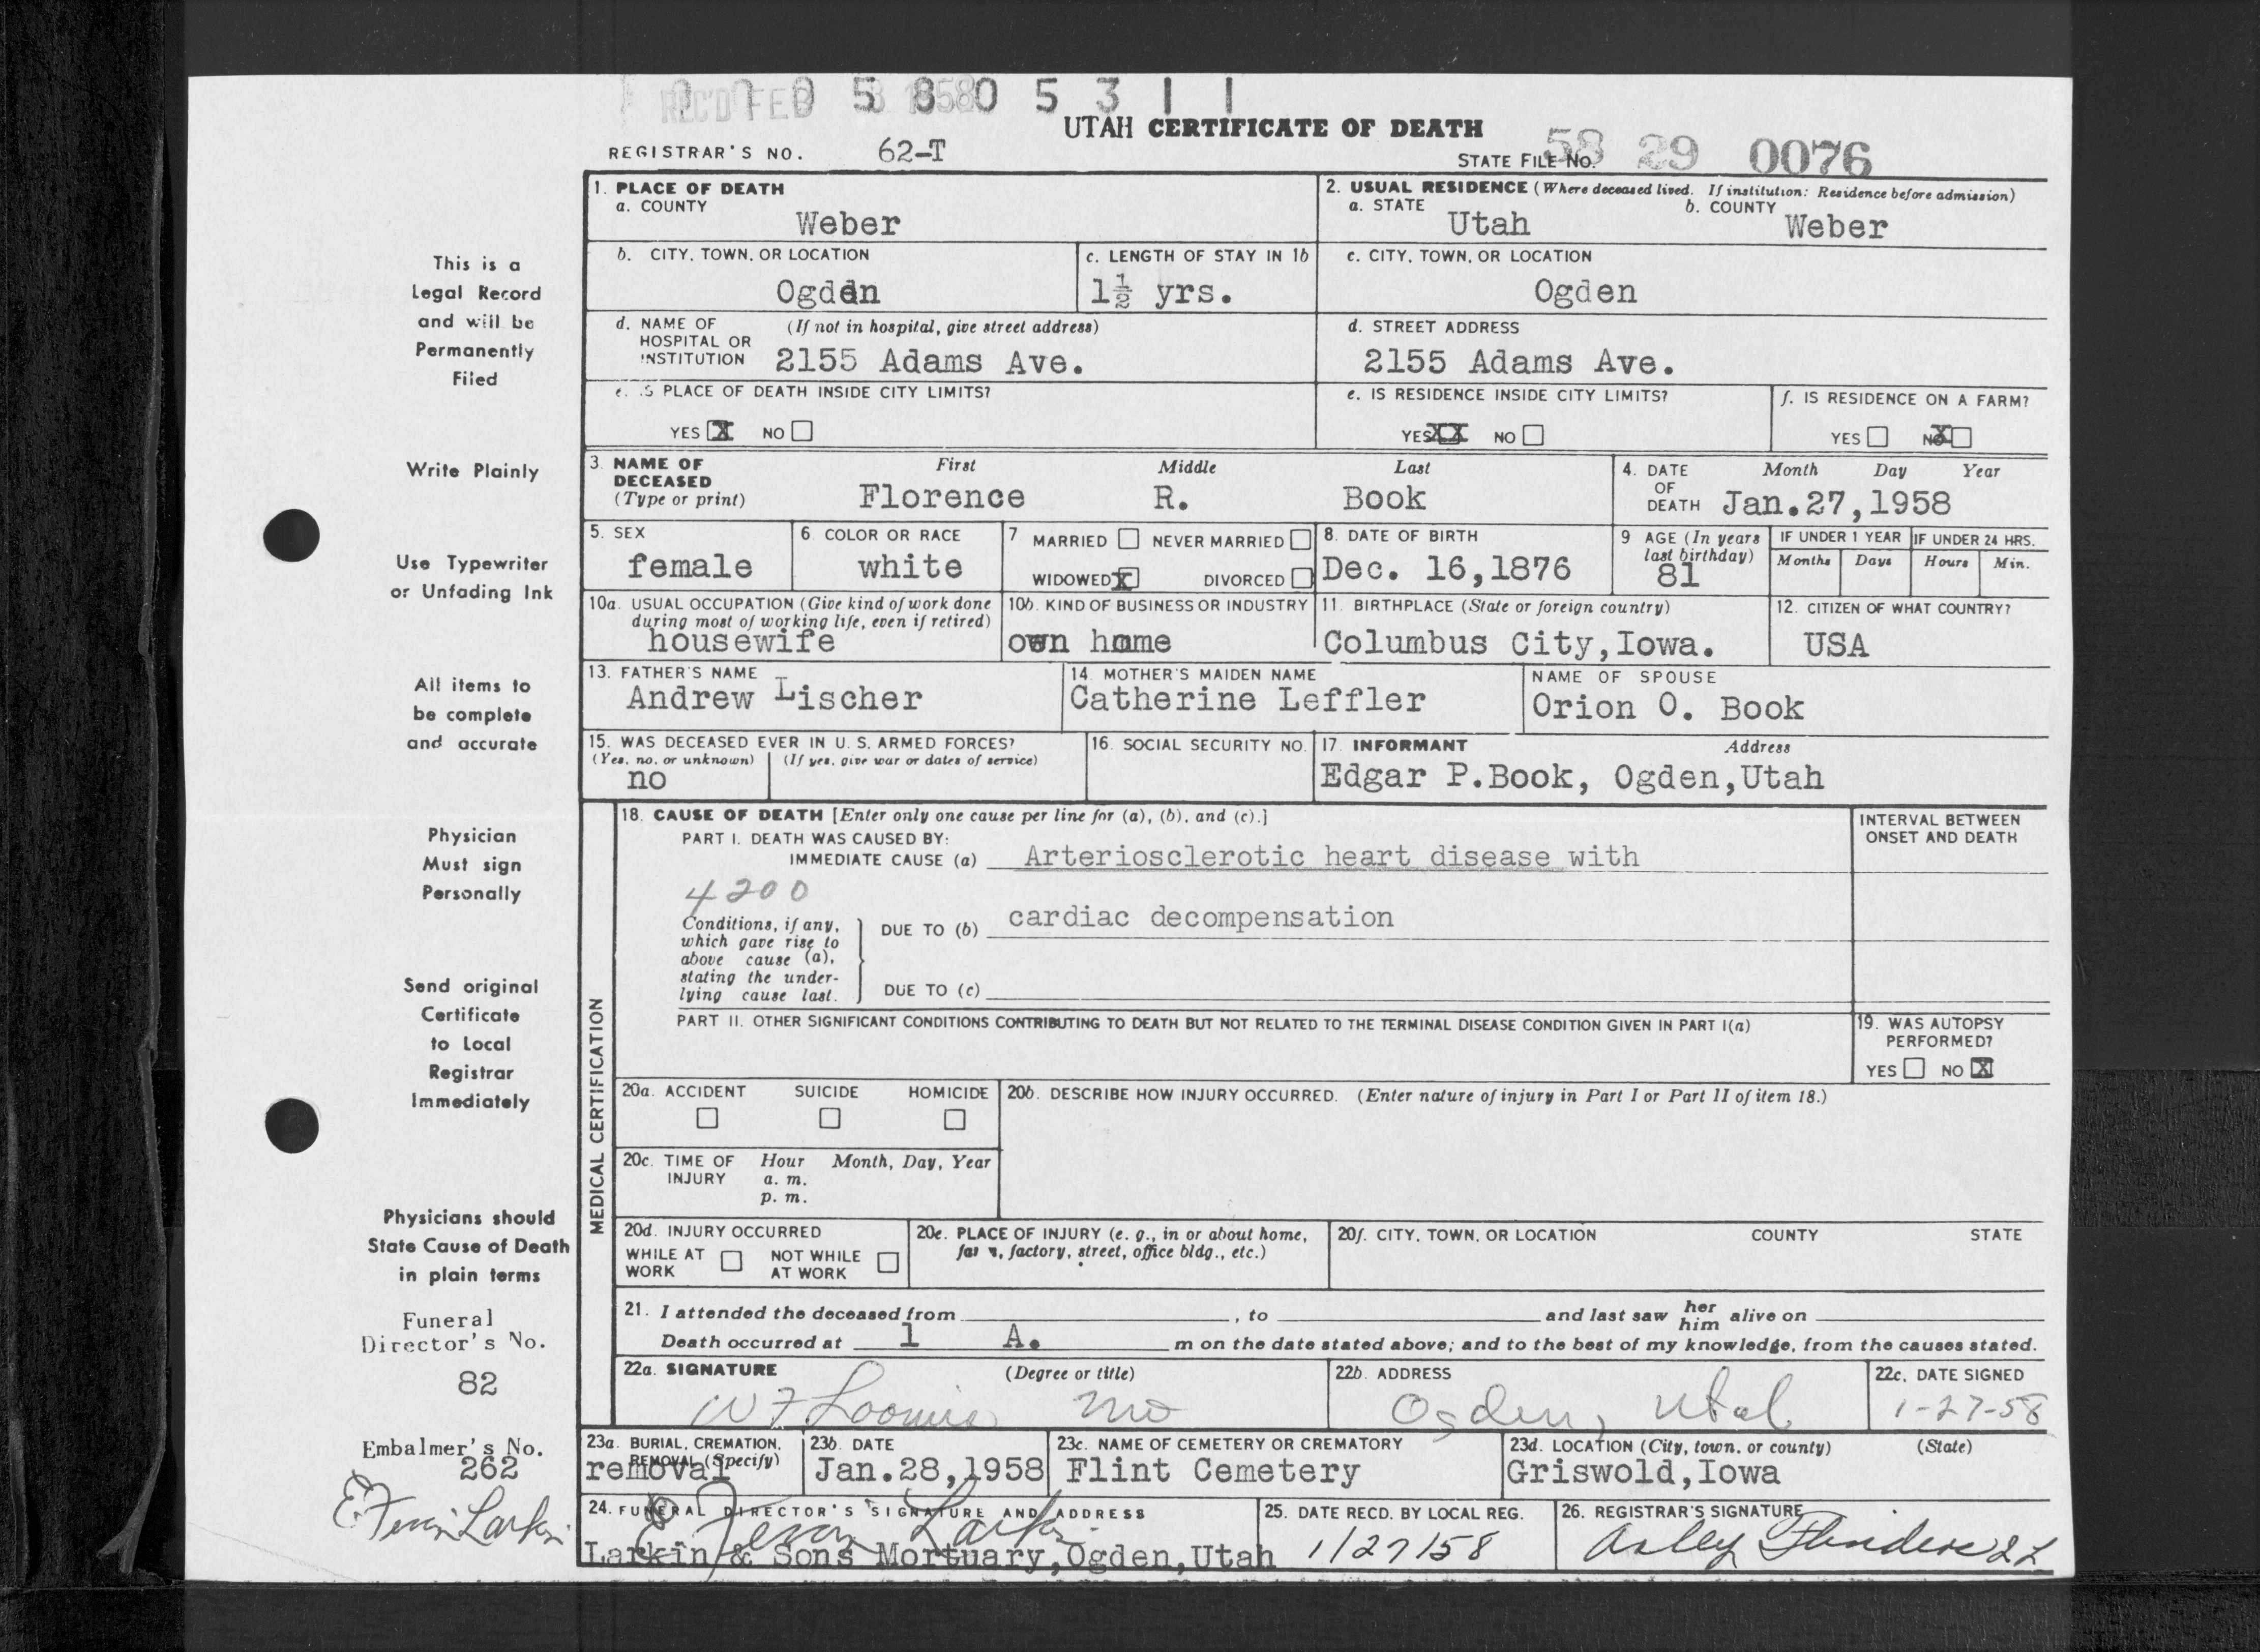 REC'D FEB 3 1958
5 8 0 5 3 1 1
UTAH CERTIFICATE OF DEATH
REGISTRAR'S NO. 62-T
STATE FILE NO. 58 29 0076
1. PLACE OF DEATH
a. COUNTY
Weber
2. USUAL RESIDENCE (Where deceased lived. If institution: Residence before admission)
a. STATE Utah b. COUNTY Weber
b. CITY, TOWN, OR LOCATION
Ogden
c. LENGTH OF STAY IN 1b
1½ yrs.
c. CITY, TOWN, OR LOCATION
Ogden
d. NAME OF HOSPITAL OR INSTITUTION (If not in hospital, give street address)
2155 Adams Ave.
d. STREET ADDRESS
2155 Adams Ave.
e. IS PLACE OF DEATH INSIDE CITY LIMITS?
YES X NO
e. IS RESIDENCE INSIDE CITY LIMITS?
YES XX NO
f. IS RESIDENCE ON A FARM?
YES NO X
3. NAME OF DECEASED (Type or print)
First Middle Last
Florence R. Book
4. DATE OF DEATH Month Day Year
Jan.27,1958
5. SEX
female
6. COLOR OR RACE
white
7. MARRIED NEVER MARRIED
WIDOWED X DIVORCED
8. DATE OF BIRTH
Dec. 16,1876
9. AGE (In years last birthday)
81
IF UNDER 1 YEAR
Months Days
IF UNDER 24 HRS.
Hours Min.
10a. USUAL OCCUPATION (Give kind of work done during most of working life, even if retired)
housewife
10b. KIND OF BUSINESS OR INDUSTRY
own home
11. BIRTHPLACE (State or foreign country)
Columbus City,Iowa.
12. CITIZEN OF WHAT COUNTRY?
USA
13. FATHER'S NAME
Andrew Lischer
14. MOTHER'S MAIDEN NAME
Catherine Leffler
NAME OF SPOUSE
Orion O. Book
15. WAS DECEASED EVER IN U. S. ARMED FORCES?
(Yes, no, or unknown) (If yes, give war or dates of service)
no
16. SOCIAL SECURITY NO.
17. INFORMANT Address
Edgar P.Book, Ogden,Utah
MEDICAL CERTIFICATION
18. CAUSE OF DEATH [Enter only one cause per line for (a), (b), and (c).]
PART I. DEATH WAS CAUSED BY:
IMMEDIATE CAUSE (a) Arteriosclerotic heart disease with
4200
Conditions, if any, which gave rise to above cause (a), stating the underlying cause last.
DUE TO (b) cardiac decompensation
DUE TO (c)
INTERVAL BETWEEN ONSET AND DEATH
PART II. OTHER SIGNIFICANT CONDITIONS CONTRIBUTING TO DEATH BUT NOT RELATED TO THE TERMINAL DISEASE CONDITION GIVEN IN PART I(a)
19. WAS AUTOPSY PERFORMED?
YES NO X
20a. ACCIDENT SUICIDE HOMICIDE
20b. DESCRIBE HOW INJURY OCCURRED. (Enter nature of injury in Part I or Part II of item 18.)
20c. TIME OF INJURY Hour Month, Day, Year
a. m.
p. m.
20d. INJURY OCCURRED
WHILE AT WORK NOT WHILE AT WORK
20e. PLACE OF INJURY (e. g., in or about home, farm, factory, street, office bldg., etc.)
20f. CITY, TOWN, OR LOCATION COUNTY STATE
21. I attended the deceased from , to and last saw her him alive on
Death occurred at 1 A. m on the date stated above; and to the best of my knowledge, from the causes stated.
22a. SIGNATURE (Degree or title)
W F Loomis MD
22b. ADDRESS
Ogden, Utah
22c. DATE SIGNED
1-27-58
23a. BURIAL, CREMATION, REMOVAL (Specify)
removal
23b. DATE
Jan.28,1958
23c. NAME OF CEMETERY OR CREMATORY
Flint Cemetery
23d. LOCATION (City, town, or county) (State)
Griswold,Iowa
24. FUNERAL DIRECTOR'S SIGNATURE AND ADDRESS
Larkin & Sons Mortuary,Ogden,Utah
25. DATE RECD. BY LOCAL REG.
1/27/58
26. REGISTRAR'S SIGNATURE
This is a
Legal Record
and will be
Permanently
Filed
Write Plainly
Use Typewriter
or Unfading Ink
All items to
be complete
and accurate
Physician
Must sign
Personally
Send original
Certificate
to Local
Registrar
Immediately
Physicians should
State Cause of Death
in plain terms
Funeral
Director's No.
82
Embalmer's No.
262
Larkin